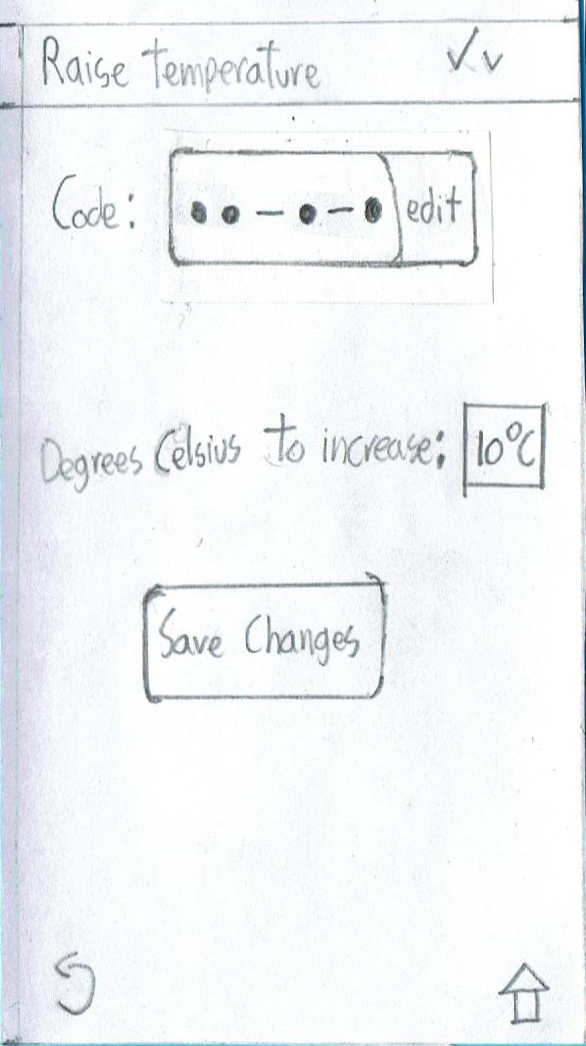 Raise temperature
Code: •• – • – • edit
Degrees Celsius to increase: 10°C
Save Changes